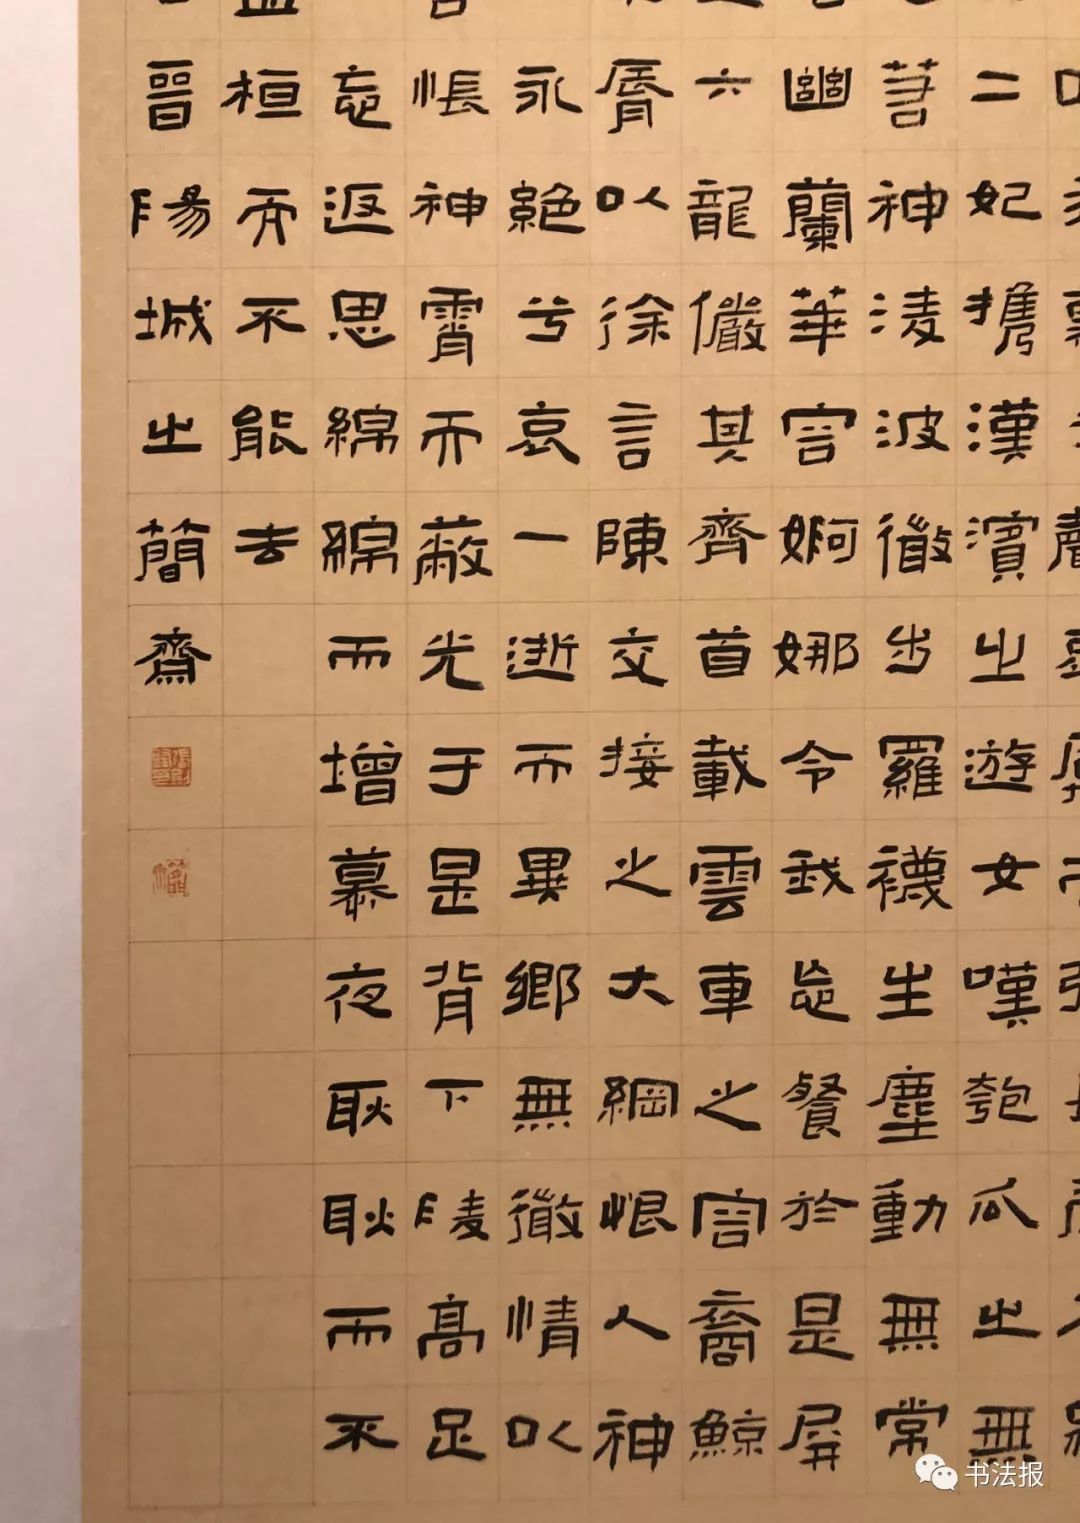 二妃携漢濱之遊女嘆匏瓜之無
若神淩波微步羅襪生塵動無常
幽蘭華容婀娜令我忘餐於是屏
六龍儼其齊首載雲車之容裔鯨
脣以徐言陳交接之大綱恨人神
永絕兮哀一逝而異鄉無微情以
悵神霄而蔽光于是背下陵高足
忘返思綿綿而增慕夜耿耿而不
桓而不能去
晉陽城之簡齋
书法报